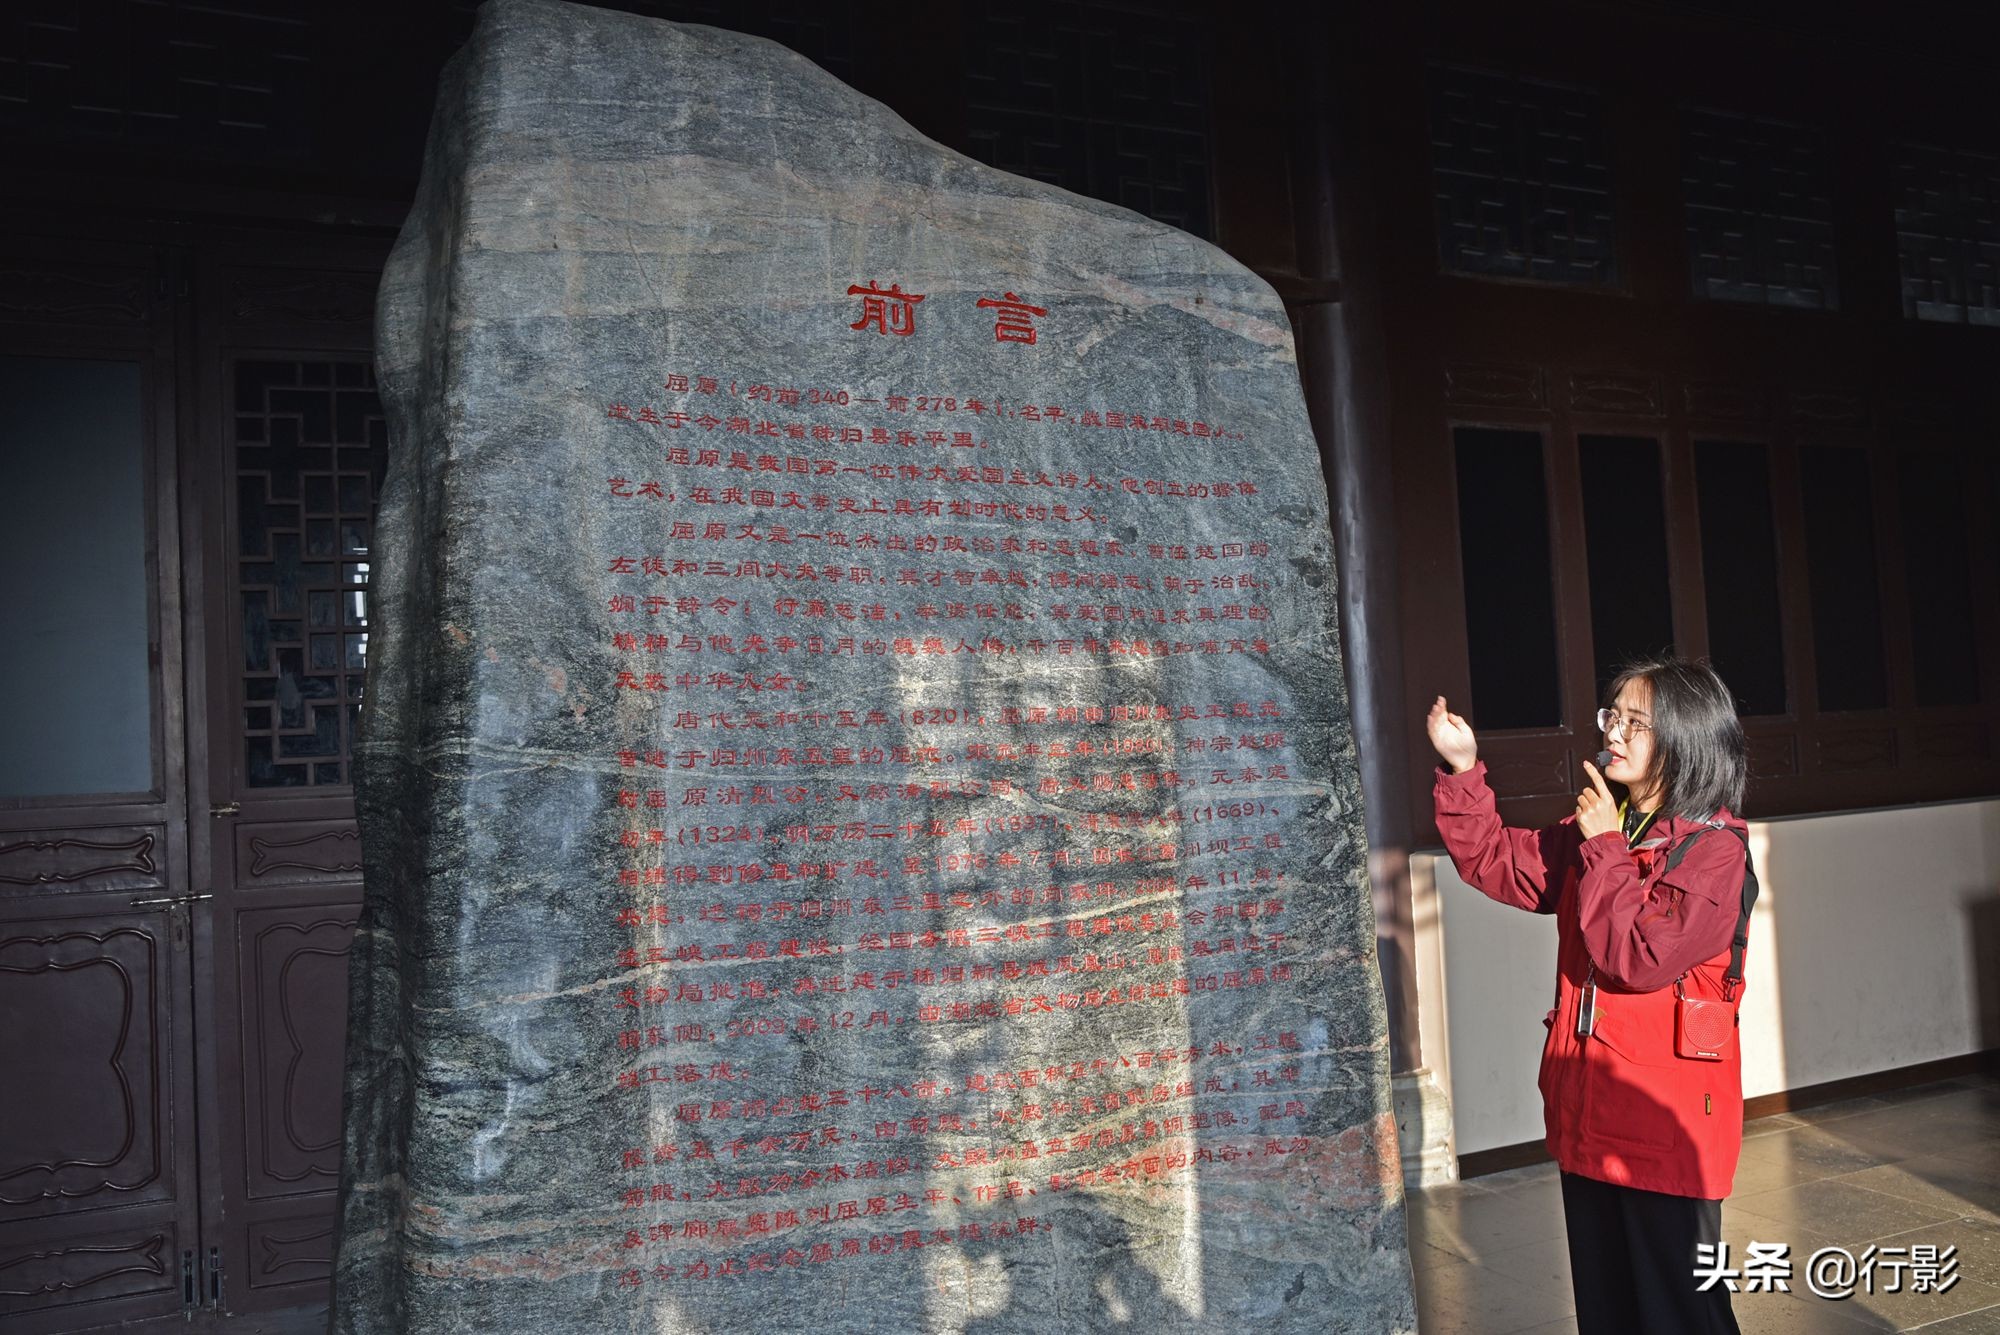 前言
屈原(约前340—前278年),名平,战国末期楚国人,
出生于今湖北省秭归县乐平里。
屈原是我国第一位伟大爱国主义诗人,他创立的骚体
艺术,在我国文学史上具有划时代的意义。
屈原又是一位杰出的政治家和思想家,曾任楚国的
左徒和三闾大夫等职,其才智卓越,博闻强志,明于治乱,
娴于辞令;行廉志洁,举贤任能,其爱国和追求真理的
精神与他光争日月的巍巍人格,千百年来感召和哺育着
无数中华儿女。
唐代元和十五年(820),屈原祠由归州刺史王茂元
首建于归州东五里的屈沱。宋元丰三年(1080),神宗赵顼
封屈原清烈公,又称清烈公祠,元泰定
初年(1324)、明万历二十五年(1597)、清康熙八年(1669)、
相继得到修葺和扩建。至1976年7月,因长江葛州坝工程
兴建,迁祠于归州东三里之外的向家坪。2006年11月,
三峡工程建设,经国务院三峡工程建设委员会和国家
文物局批准,再迁建于秭归新县城凤凰山,屈原墓同迁于
祠东侧,2009年12月,由湖北省文物局主持迁建的屈原祠
竣工落成。
屈原祠占地三十八亩,建筑面积五千八百平方米,工程
投资五千余万元,由前殿、大殿和左右配房组成,其中
前殿、大殿为全木结构,大殿内矗立有屈原青铜塑像。配殿
及碑廊展览陈列屈原生平、作品、影响等方面的内容,成为
迄今为止纪念屈原的最大建筑群。
头条@行影